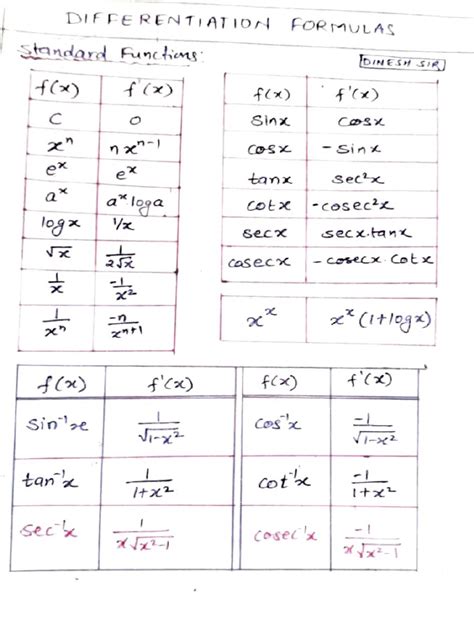 DIFFERENTIATION FORMULAS
Standard Functions:
DINESH SIR
f(x) f'(x)
C 0
xⁿ nxⁿ⁻¹
eˣ eˣ
aˣ aˣ loga
logx 1/x
√x 1/(2√x)
1/x -1/x²
1/xⁿ -n/xⁿ⁺¹
f(x) f'(x)
sinx cosx
cosx -sinx
tanx sec²x
cotx -cosec²x
secx secx.tanx
cosecx -cosecx.cotx
xˣ xˣ(1+logx)
f(x) f'(x) f(x) f'(x)
sin⁻¹x 1/√(1-x²) cos⁻¹x -1/√(1-x²)
tan⁻¹x 1/(1+x²) cot⁻¹x -1/(1+x²)
sec⁻¹x 1/(x√(x²-1)) cosec⁻¹x -1/(x√(x²-1))